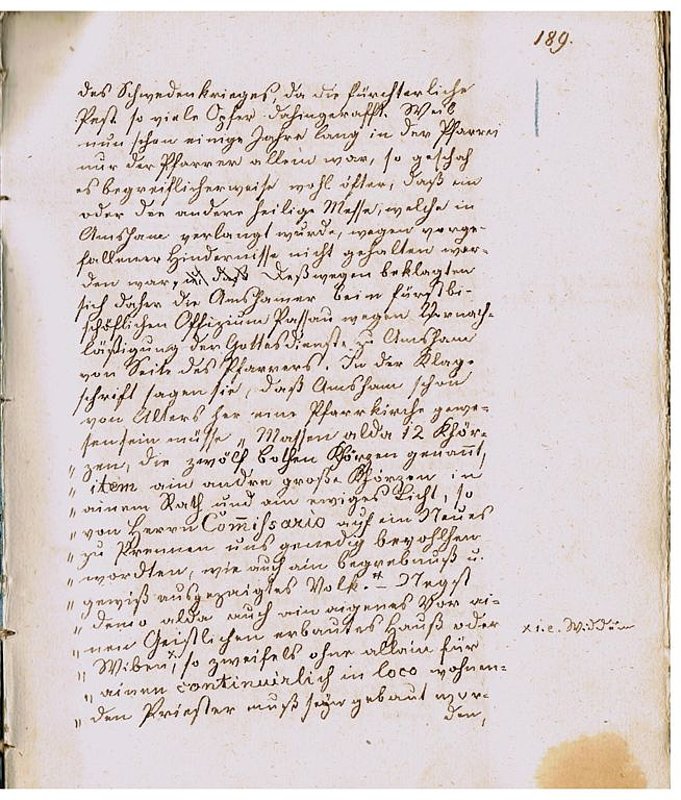 189.
des Schwedenkrieges, da die fürchterliche
Pest so viele Opfer dahingerafft. Weil
nun schon einige Jahre lang in der Pfarrei
nur der Pfarrer allein war, so geschah
es begreiflicherweise wohl öfter, daß ein
oder die andere heilige Messe, welche in
Amsham verlangt wurde, wegen vorge-
fallener Hindernisse nicht gehalten wor-
den war, Deßwegen beklagten
sich daher die Amshamer beim fürstbi-
schöflichen Offizium Passau wegen Vernach-
läßigung der Gottesdienste zu Amsham
von Seite des Pfarrers. In der Klag-
schrift sagen sie, daß Amsham schon
von Alters her eine Pfarrkirche gewe-
sen sein müsse „Massen alda 12 Khör-
„ zen, die zwölf bothen Khörzen genant,
„ item ain andre große Khörzen in
„ ainem Rath und ain ewiges Licht, so
„ von Herrn Com̄issario auf ein Neues
„ zu Prennen uns genedig bevolhen
„ wordten, wie auch ain begrebnuß u.
„ gewiß ausgezaigtes Volk. – Negst
„ deme alda auch ain aigenes vor ai-
„ nen Geistlichen erbautes Hauß oder
„ Widen,ˣ so zweifels ohne allain für
„ ainen continuirlich in loco wohnen-
„ den Priester muß seyn gebaut wor-
den,
x i. e. Widdum